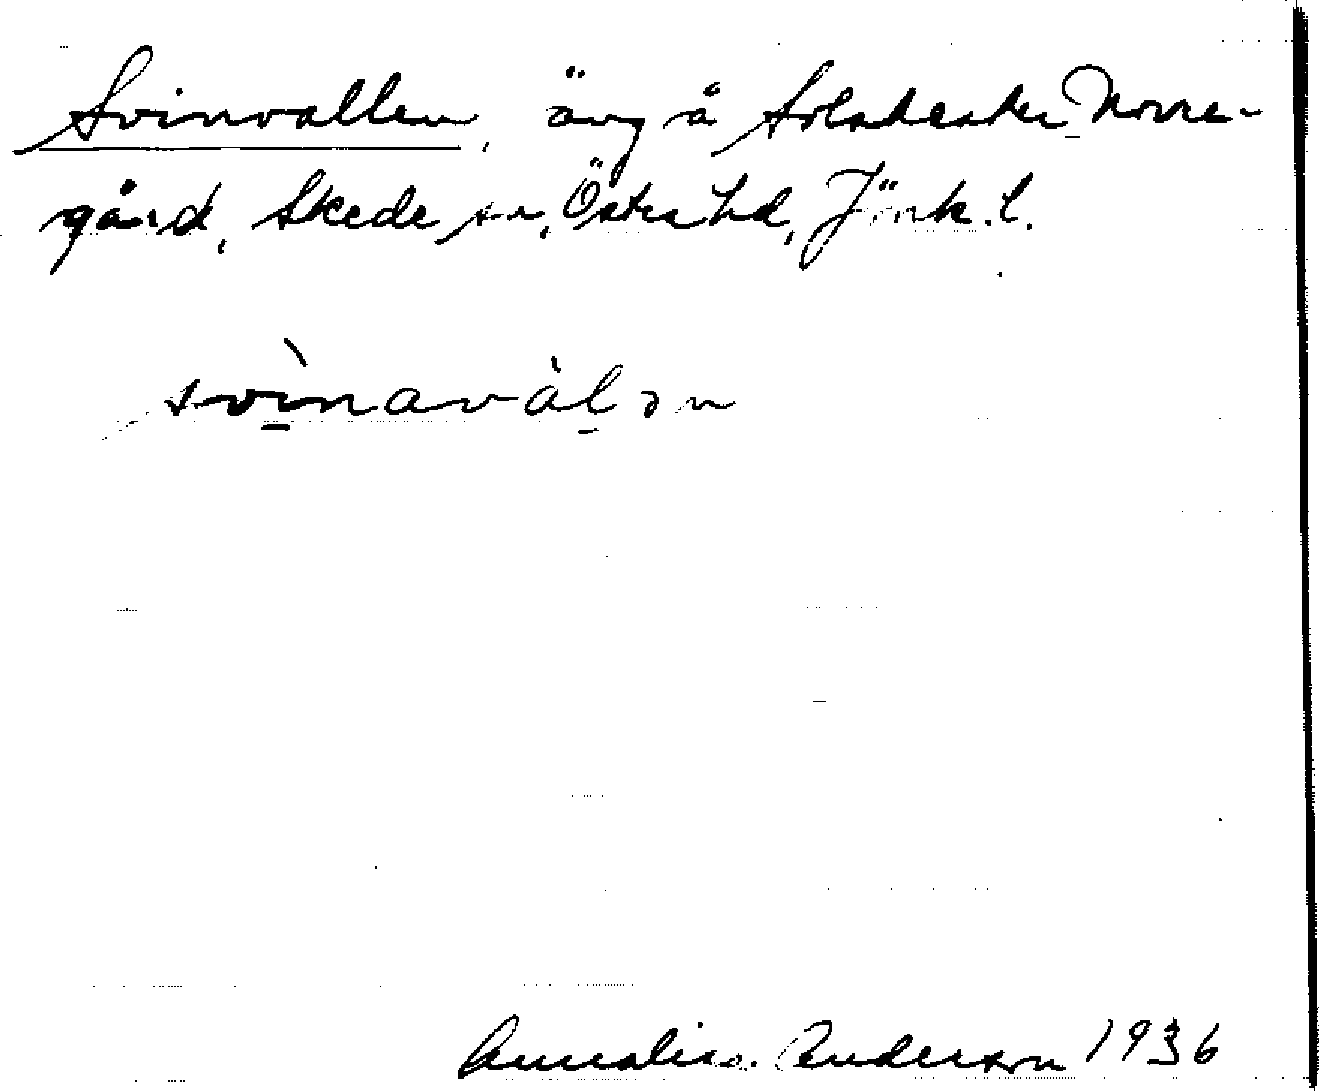 Svinvallen, äng å Solaberke Norre-
gård, Skede sn, Östra hd, Jönk. l.
svìnavàlən
Annalisa Anderson 1936